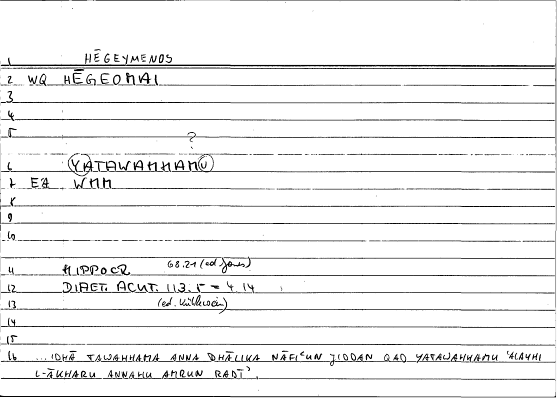 1 HĒGEYMENOS
2 WQ HĒGEOMAI
3
4
5
?
6 YATAWAHHAMU
7 EZ WHM
8
9
10
11 HIPPOCR 68.21 (ed. Jones)
12 DIAET. ACUT. 113.5 = 4.14
13 (ed. Kühlewein)
14
15
16 ...IDHĀ TAWAHHAMA ANNA DHĀLIKA NĀFIʿUN JIDDAN QAD YATAWAHHAMU ʿALAYHI
L-ĀKHARU ANNAHU AMRUN RADĪʾ.